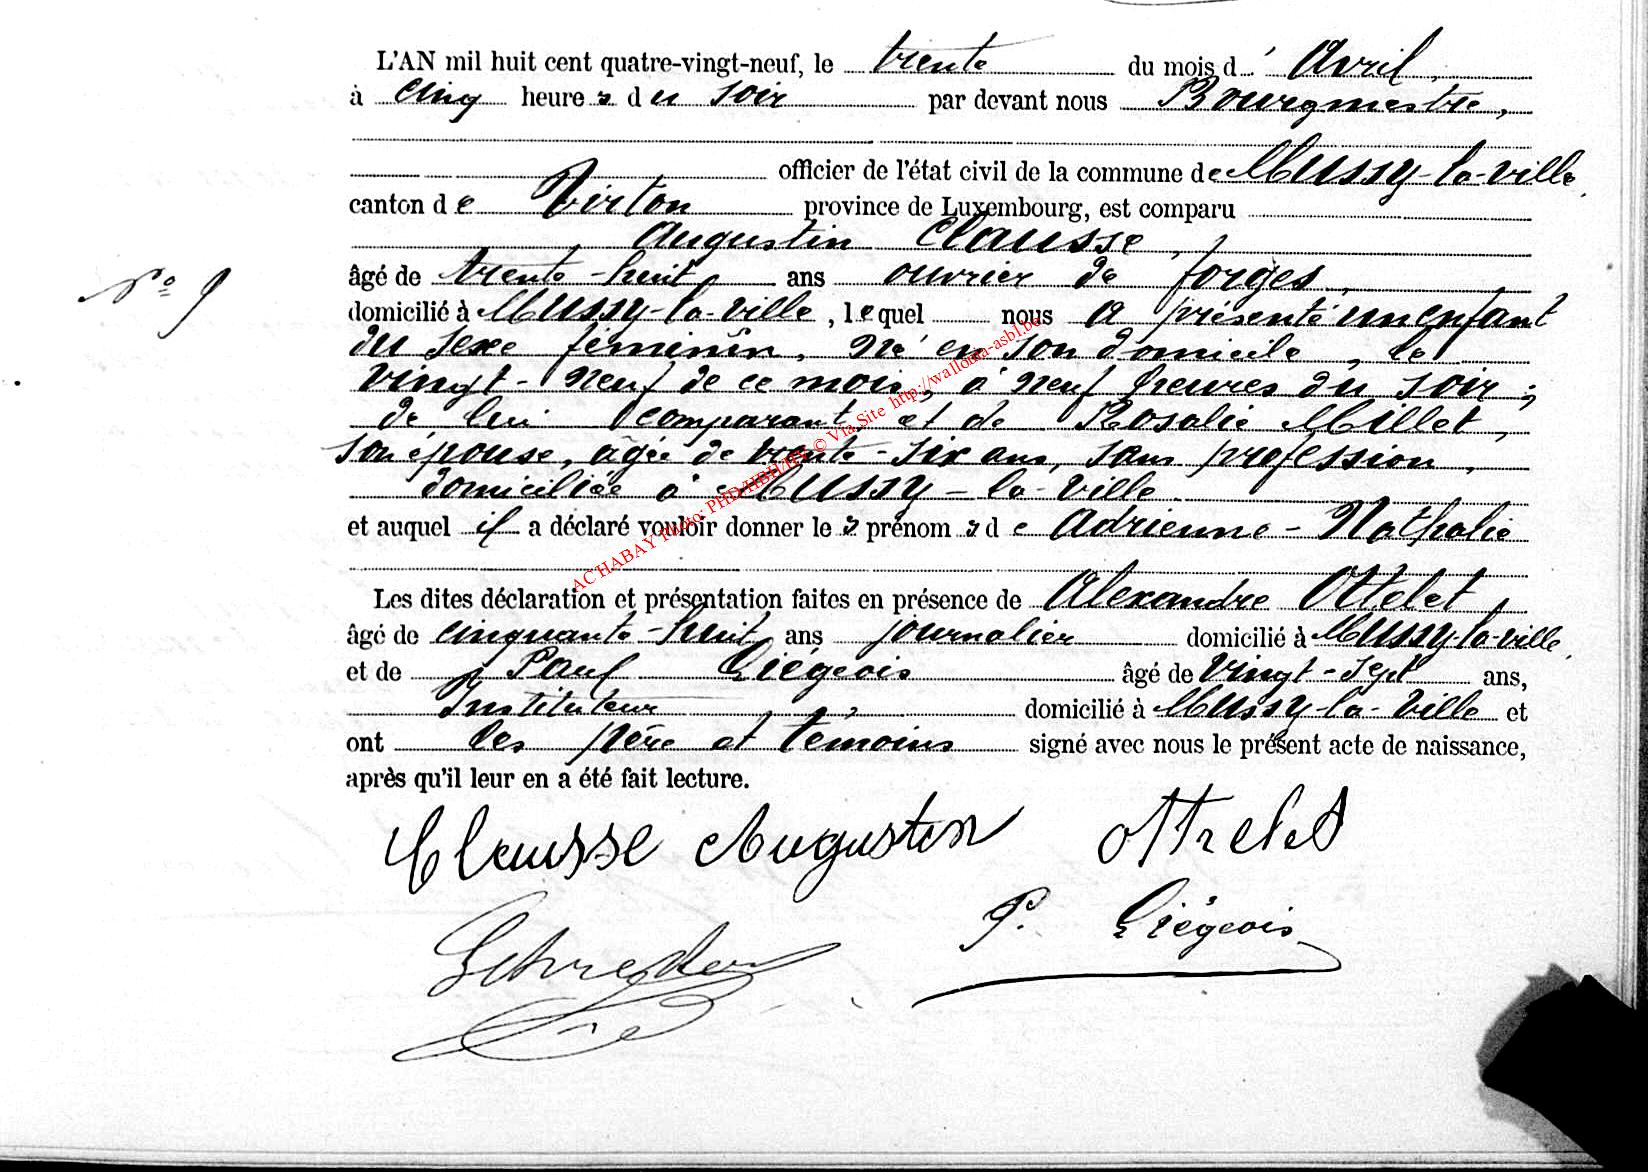 L'AN mil huit cent quatre-vingt-neuf, le trente du mois d' Avril,
à cinq heures du soir par devant nous Bourgmestre,
officier de l'état civil de la commune de Mussy-la-ville,
canton de Virton province de Luxembourg, est comparu
Augustin Clausse,
âgé de trente-huit ans ouvrier de forges,
N° 9
domicilié à Mussy-la-ville, lequel nous a présenté un enfant
du sexe féminin, né en son domicile, le
vingt-neuf de ce mois, à neuf heures du soir;
de lui comparant et de Rosalie Millet,
son épouse, âgée de trente-six ans, sans profession,
domiciliée à Mussy-la-Ville
et auquel il a déclaré vouloir donner les prénoms de Adrienne-Nathalie
AC HABAY Photo: PHD/HBH/HY © Via Site http://wallonia-asbl.be
Les dites déclaration et présentation faites en présence de Alexandre Ottelet,
âgé de cinquante-huit ans journalier domicilié à Mussy-la-ville,
et de Paul Liégeois âgé de vingt-sept ans,
Instituteur, domicilié à Mussy-la-Ville et
ont les père et témoins signé avec nous le présent acte de naissance,
après qu'il leur en a été fait lecture.
Clausse Augustin Ottelet
P. Liégeois